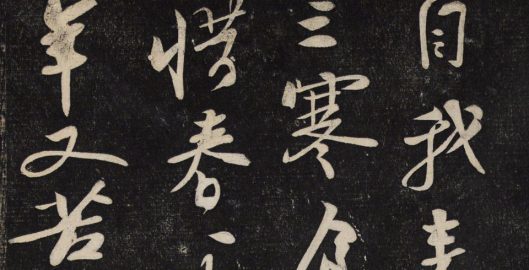 自我来
三寒食
惜春
年又苦